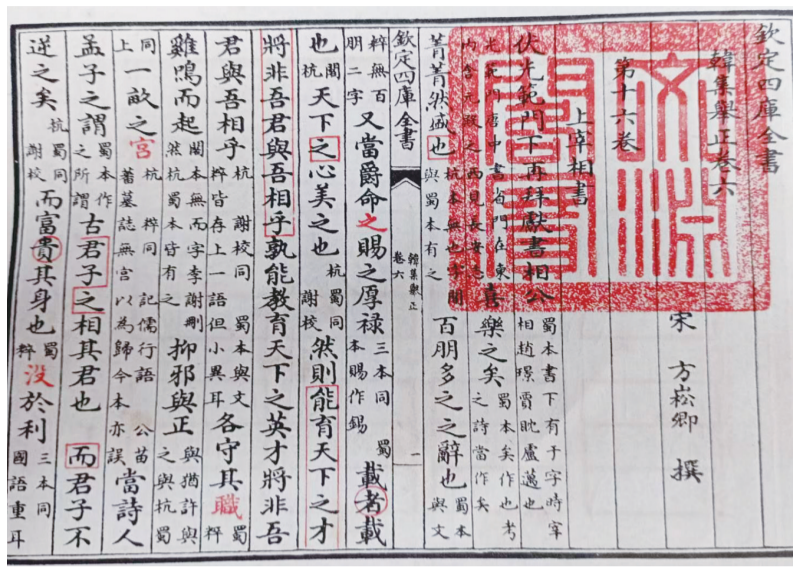 欽定四庫全書
韓集舉正卷六
宋 方崧卿 撰
第十六卷
上宰相書
伏光範門下再拜獻書相公 蜀本書下有于字時宰相趙璟賈眈盧邁也
光範門唐中書省門在東内含元殿之西見長安志 喜樂之矣 蜀本矣作也考之詩當作矣
菁菁然盛也 杭本無也字閣與蜀本有之 百朋多之之辭也 蜀本與文
欽定四庫全書 韓集舉正 卷六 一
粹無百朋二字 又當爵命之賜之厚祿 三本同蜀本賜作錫 載者載
也 閣杭 天下之心美之也 杭蜀同謝校 然則能育天下之才
將非吾君與吾相乎孰能教育天下之英才將非吾
君與吾相乎 杭謝校同蜀本與文粹皆存上一語但小異耳 各守其職 蜀粹
雞鳴而起 閣本無而字李謝刪然杭蜀本皆有之 抑邪與正 與猶許與之與杭蜀
同上 一畝之宮 杭粹同記儒行語公苗蕃墓誌無宮以為歸今本亦誤 當詩人
孟子之謂 蜀本作之所謂 古君子之相其君也 而君子不
逆之矣 杭蜀同謝校 而富貴其身也 蜀粹 沒於利 三本同國語重耳
文淵閣寶